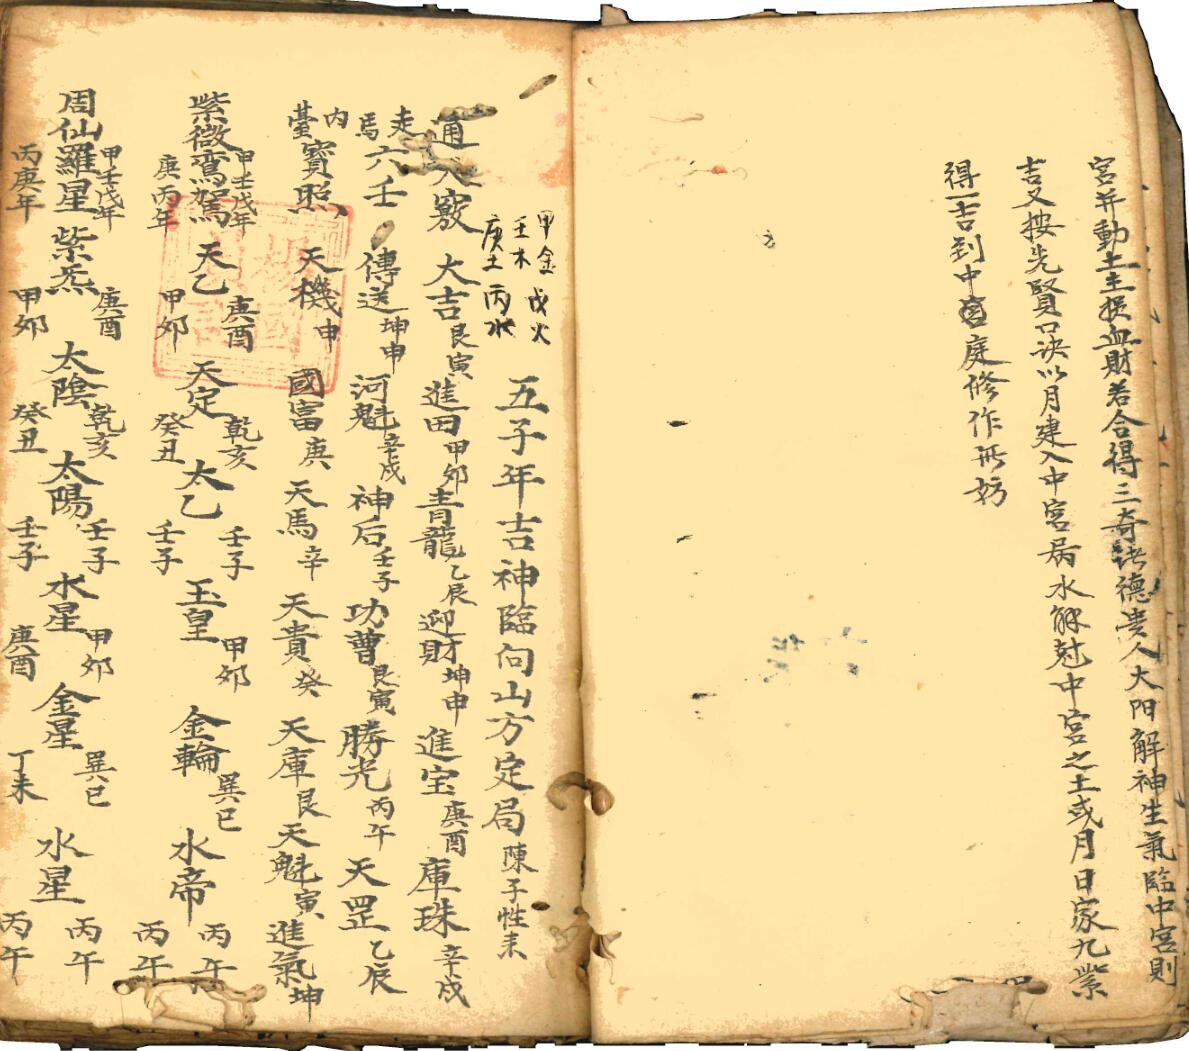 宮并動土主損血財若合得三奇諸德貴人太阳解神生氣臨中宮則
吉又按先賢口诀以月建入中宮病水解尅中宮之土或月日家九紫
得一吉到中宮庭修作無妨
五子年吉神臨向山方定局 陳子性耒
甲金 戊火
壬木
庚土 丙水
通天竅 大吉艮寅 進田甲卯 青龍乙辰 迎財坤申 進宝庚酉 庫珠辛戌
走馬六壬 傳送坤申 河魁辛戌 神后壬子 功曹艮寅 勝光丙午 天罡乙辰
內臺寶照 天機申 國富庚 天馬辛 天貴癸 天庫艮 天魁寅 進氣坤
紫微鸞駕 甲壬戊年 庚丙年 天乙 庚酉 甲卯 天定 乾亥 癸丑 太乙 壬子 壬子 玉皇 甲卯 金輪 巽巳 水帝 丙午 丙午
周仙羅星 甲壬戊年 丙庚年 紫炁 庚酉 甲卯 太陰 乾亥 癸丑 太陽 壬子 壬子 水星 甲卯 庚酉 金星 巽巳 丁未 水星 丙午 丙午